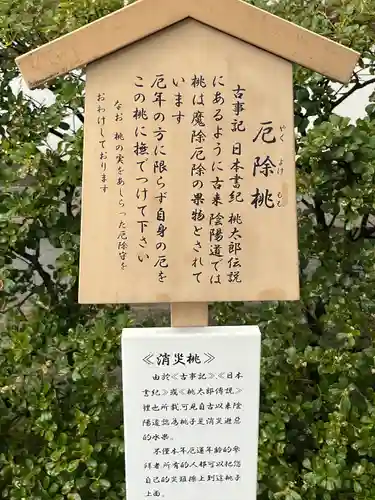 厄除桃
やくよけもも
古事記 日本書紀 桃太郎伝説
にあるように古来 陰陽道では
桃は魔除厄除の果物とされて
います
厄年の方に限らず自身の厄を
この桃に撫でつけて下さい
なお 桃の実をあしらった厄除守を
おわけしております
≪消災桃≫
由於≪古事記≫≪日本
書紀≫或≪桃太郎傳說≫
裡也所載可見自古以來陰
陽道認為桃子是消災避惡
的水果。
不僅本年厄運年齡的參
拜者所有的人都可以把您
自己的災難擦上到這桃子
上面。